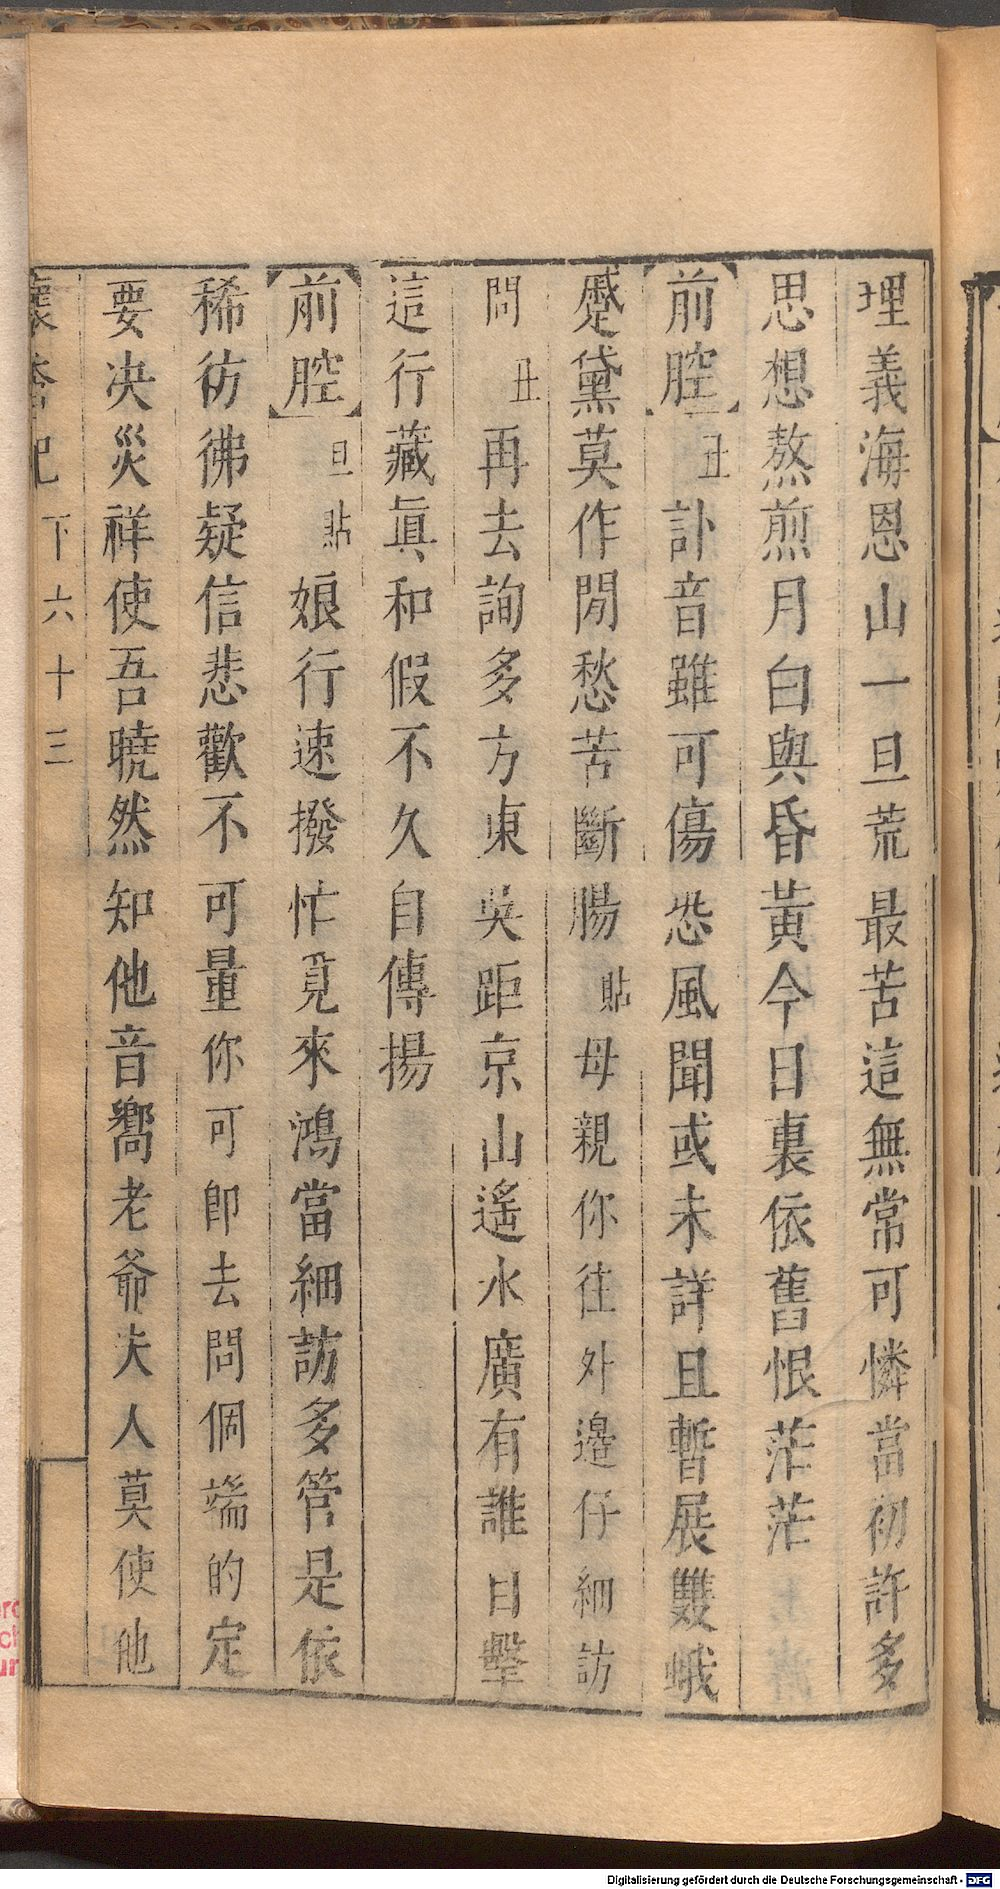 埋義海恩山一旦荒最苦這無常可憐當初許多
思想熬煎月白與昏黃今日裏依舊恨茫茫
【前腔】丑訃音雖可傷恐風聞或未詳且暫展雙蛾
蹙黛莫作閒愁苦斷腸貼母親你往外邊仔細訪
問丑再去詢多方東吳距京山遙水廣有誰目擊
這行藏眞和假不久自傳揚
【前腔】旦貼娘行速撥忙覓來鴻當細訪多管是依
稀彷彿疑信悲歡不可量你可卽去問個端的定
要決災祥使吾曉然知他音嚮老爺夫人莫使他
懷香記下六十三
Digitalisierung gefördert durch die Deutsche Forschungsgemeinschaft - DFG